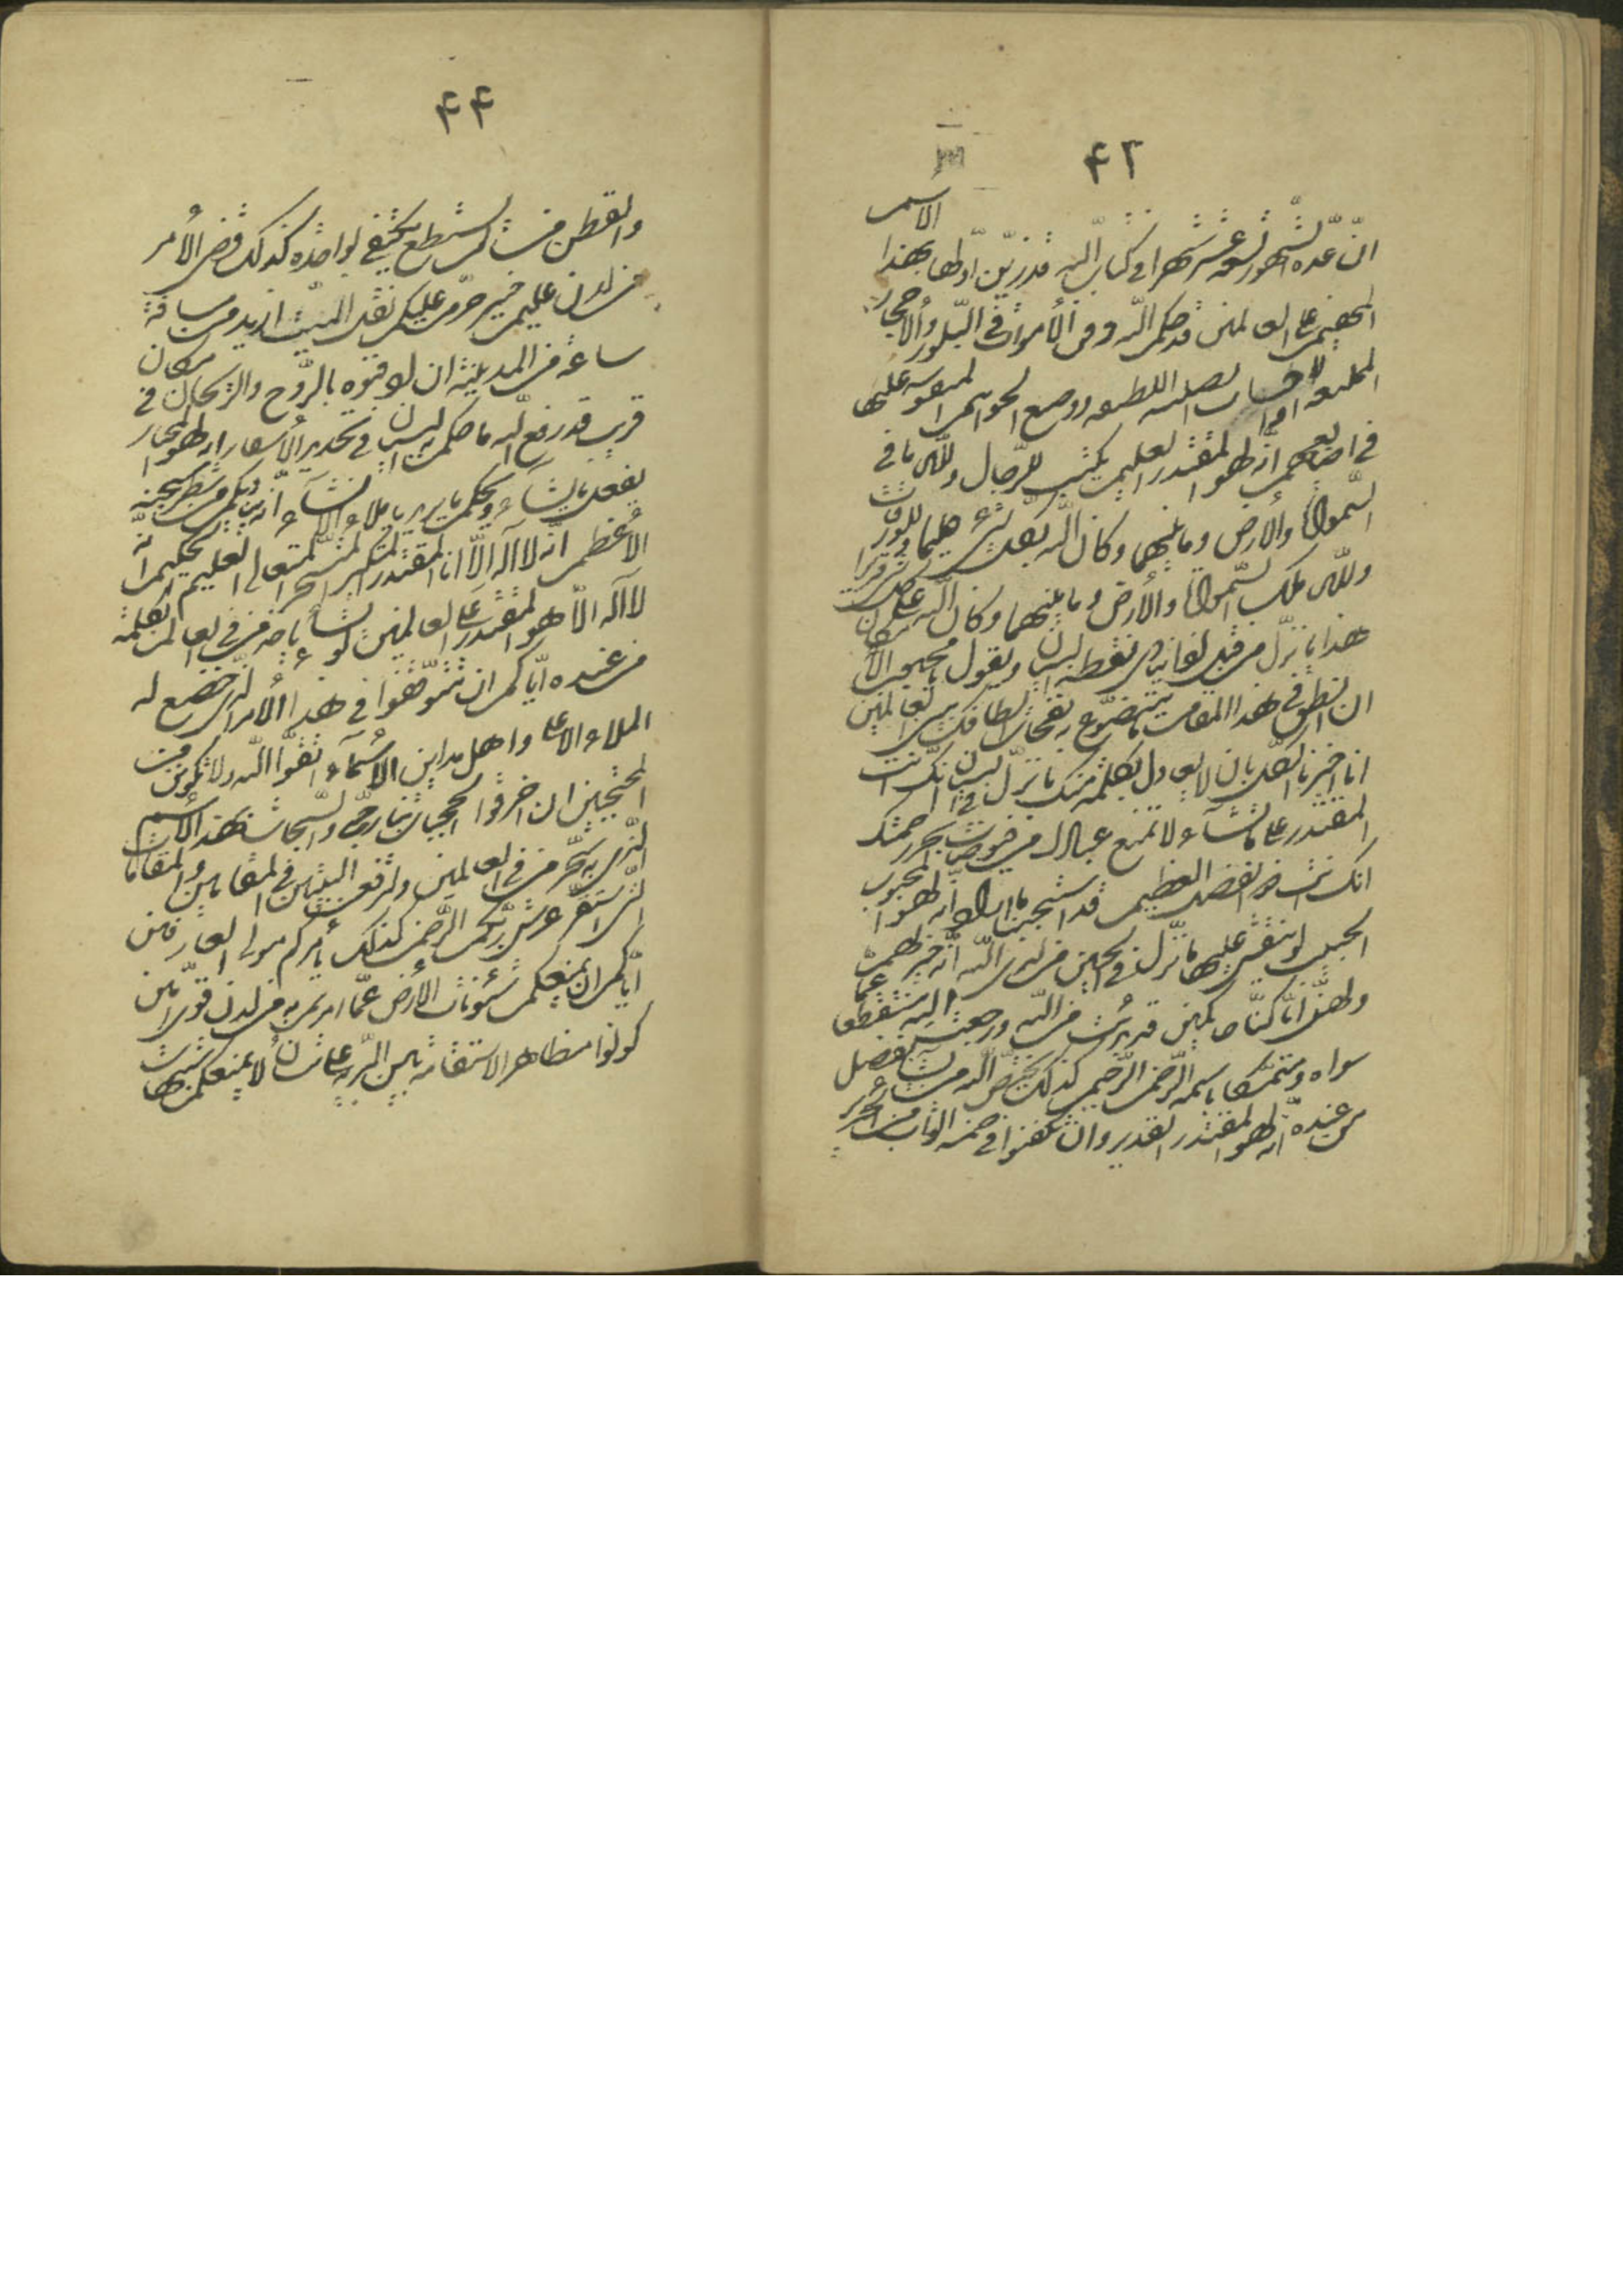 ۴۲
انّ عدّة الشّهور تسعة عشر شهرا فی کتاب اللّه قد زیّن اوّلها بهذا الاسم
المهیمن علی العالمین قد حکم اللّه دفن الأموات فی البلّور و الاحجار
الممتنعه او الاخشاب الصلبه اللطیفه و وضع الخواتیم المنقوشه علیها
فی اصابعهم انّه لهو المقتدر العلیم یکتب للرّجال و للّه ما فی
السّموات و الأرض و ما بینهما و کان اللّه بکلّ شیء علیما و للورقات
و للّه ملک السّموات و الأرض و ما بینهما و کان اللّه علی کلّ شیء قدیرا
هذا ما نزّل من قبل ینادی نقطة البیان و یقول یا محبوب الامکان
ان انطق فی هذا المقام بما یتضوّع به نفحات الطافک بین العالمین
انا اخبرنا الکلّ بان لا یعادل بکلمة منک ما نزّل فی البیان انّک انت
المقتدر علی ما تشآء لا تمنع عبادک من فیوضات بحر رحمتک
انّک انت ذو الفضل العظیم قد استجبنا ما اراد انّه لهو المحبوب
المجیب لو ینقش علیها ما نزّل فی الحین من لدی اللّه انّه خیر لهم
و لهنّ انّا کنّا حاکمین قد بدئت من اللّه و رجعت الیه منقطعا عمّا
سواه و متمسّکا باسمه الرّحمن الرّحیم کذلک یختصّ اللّه من یشآء بفضل
من عنده انّه لهو المقتدر القدیر و ان تکفنوا فی خمسة اثواب من الحریر
۴۴
و القطن من لم یستطع یکتفی بواحده کذلک قضی الأمر
من لدن علیم خبیر حرّم علیکم نقل المیّت ازید من مسافة
ساعة من المدینة ان ادفنوه بالرّوح و الرّیحان فی مکان
قریب قد رفع اللّه ما حکم به البیان فی تحدید الأسفار انّه لهو المختار
یفعل ما یشآء و یحکم ما یرید یا ملاء الانشآء انّه ینادیکم من شطر سجنه
الأعظم انّه لا اله الّا انا المقتدر المتکبّر المتسخّر المتعالی العلیم الحکیم انّه
لا اله الّا هو المقتدر علی العالمین لو یشآء یأخذ من فی العالم بکلمة
من عنده ایّاکم ان تتوقّفوا فی هذا الأمر الّذی خضع له
الملاء الاعلی و اهل مداین الأسمآء اتّقوا اللّه و لا تکوننّ من
المحتجبین ان احرقوا الحجبات بنار حبّی و السّبحات بهذا الأسم
الّذی به سخّر من فی العالمین و ارفعنّ البیتین فی المقامین و المقامات
الّتی استقرّ عرش ربّکم الرّحمن کذلک یأمرکم مولی العارفین
ایّاکم ان یمنعکم شئونات الأرض عمّا امرتم به من لدن قویّ امین
کونوا مظاهر الاستقامة بین البریّه علی شأن لا یمنعکم شبهات